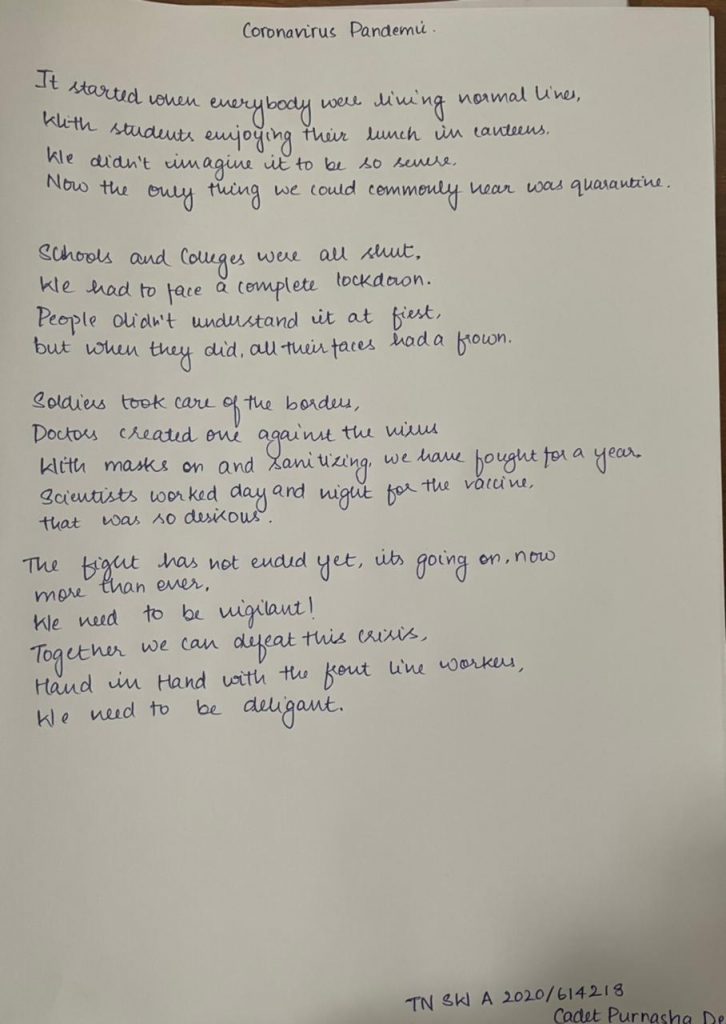 Coronavirus Pandemic.
It started when everybody were living normal lives,
With students enjoying their lunch in canteens.
We didn't imagine it to be so severe.
Now the only thing we could commonly hear was quarantine.
Schools and Colleges were all shut,
We had to face a complete lockdown.
People didn't understand it at first,
but when they did, all their faces had a frown.
Soldiers took care of the borders,
Doctors created one against the virus
With masks on and sanitizing, we have fought for a year.
Scientists worked day and night for the vaccine,
that was so desirous.
The fight has not ended yet, its going on, now
more than ever,
We need to be vigilant!
Together we can defeat this crisis,
Hand in Hand with the front line workers,
We need to be deligant.
TN SW A 2020/614218
Cadet Purnasha De